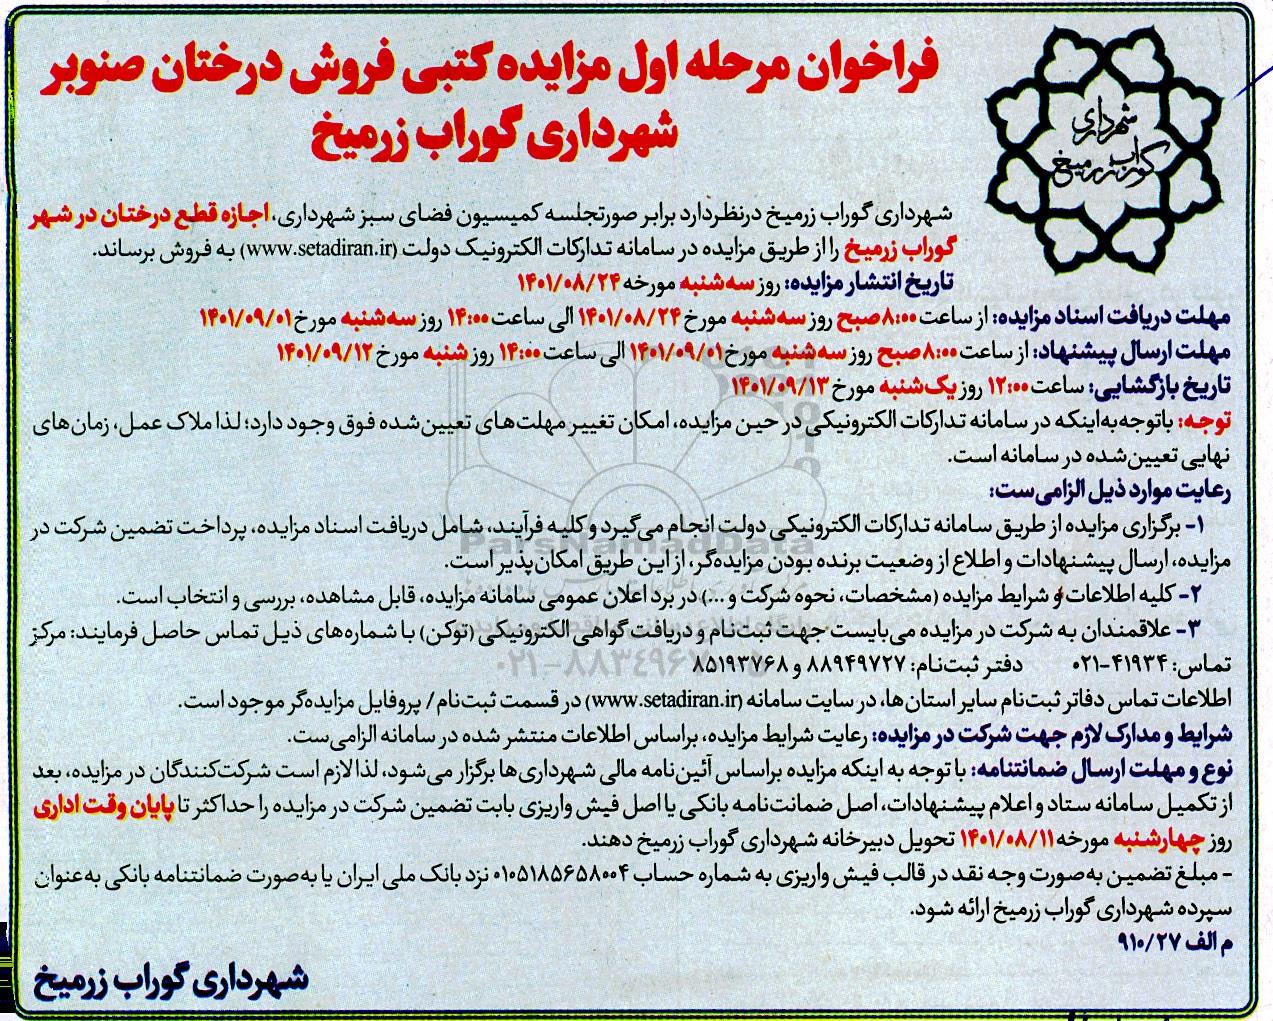 فراخوان مرحله اول مزایده کتبی فروش درختان صنوبر
شهرداری گوراب زرمیخ
شهرداری
گوراب زرمیخ
شهرداری گوراب زرمیخ درنظردارد برابر صورتجلسه کمیسیون فضای سبز شهرداری، اجازه قطع درختان در شهر
گوراب زرمیخ را از طریق مزایده در سامانه تدارکات الکترونیک دولت (www.setadiran.ir) به فروش برساند.
تاریخ انتشار مزایده: روز سه‌شنبه مورخه ۱۴۰۱/۰۸/۲۴
مهلت دریافت اسناد مزایده: از ساعت ۸:۰۰ صبح روز سه‌شنبه مورخ ۱۴۰۱/۰۸/۲۴ الی ساعت ۱۴:۰۰ روز سه‌شنبه مورخ ۱۴۰۱/۰۹/۰۱
مهلت ارسال پیشنهاد: از ساعت ۸:۰۰ صبح روز سه‌شنبه مورخ ۱۴۰۱/۰۹/۰۱ الی ساعت ۱۴:۰۰ روز شنبه مورخ ۱۴۰۱/۰۹/۱۲
تاریخ بازگشایی: ساعت ۱۲:۰۰ روز یک‌شنبه مورخ ۱۴۰۱/۰۹/۱۳
توجه: باتوجه‌به‌اینکه در سامانه تدارکات الکترونیکی در حین مزایده، امکان تغییر مهلت‌های تعیین‌شده فوق وجود دارد؛ لذا ملاک عمل، زمان‌های
نهایی تعیین‌شده در سامانه است.
رعایت موارد ذیل الزامی‌ست:
۱- برگزاری مزایده از طریق سامانه تدارکات الکترونیکی دولت انجام می‌گیرد و کلیه فرآیند، شامل دریافت اسناد مزایده، پرداخت تضمین شرکت در
مزایده، ارسال پیشنهادات و اطلاع از وضعیت برنده بودن مزایده‌گر، از این طریق امکان‌پذیر است.
۲- کلیه اطلاعات و شرایط مزایده (مشخصات، نحوه شرکت و ...) در برد اعلان عمومی سامانه مزایده، قابل مشاهده، بررسی و انتخاب است.
۳- علاقمندان به شرکت در مزایده می‌بایست جهت ثبت‌نام و دریافت گواهی الکترونیکی (توکن) با شماره‌های ذیل تماس حاصل فرمایند: مرکز
تماس: ۴۱۹۳۴-۰۲۱ دفتر ثبت‌نام: ۸۸۹۴۹۷۲۷ و ۸۵۱۹۳۷۶۸
اطلاعات تماس دفاتر ثبت‌نام سایر استان‌ها، در سایت سامانه (www.setadiran.ir) در قسمت ثبت‌نام / پروفایل مزایده‌گر موجود است.
شرایط و مدارک لازم جهت شرکت در مزایده: رعایت شرایط مزایده، براساس اطلاعات منتشر شده در سامانه الزامی‌ست.
نوع و مهلت ارسال ضمانتنامه: با توجه به اینکه مزایده براساس آئین‌نامه مالی شهرداری‌ها برگزار می‌شود، لذا لازم است شرکت‌کنندگان در مزایده، بعد
از تکمیل سامانه ستاد و اعلام پیشنهادات، اصل ضمانت‌نامه بانکی یا اصل فیش واریزی بابت تضمین شرکت در مزایده را حداکثر تا پایان وقت اداری
روز چهارشنبه مورخه ۱۴۰۱/۰۸/۱۱ تحویل دبیرخانه شهرداری گوراب زرمیخ دهند.
- مبلغ تضمین به‌صورت وجه نقد در قالب فیش واریزی به شماره حساب ۰۱۰۵۱۸۵۶۵۸۰۰۴ نزد بانک ملی ایران یا به‌صورت ضمانتنامه بانکی به‌عنوان
سپرده شهرداری گوراب زرمیخ ارائه شود.
م الف ۹۱۰/۲۷
شهرداری گوراب زرمیخ
ParsNamadData
۰۲۱-۸۸۳۴۹۶۷۰